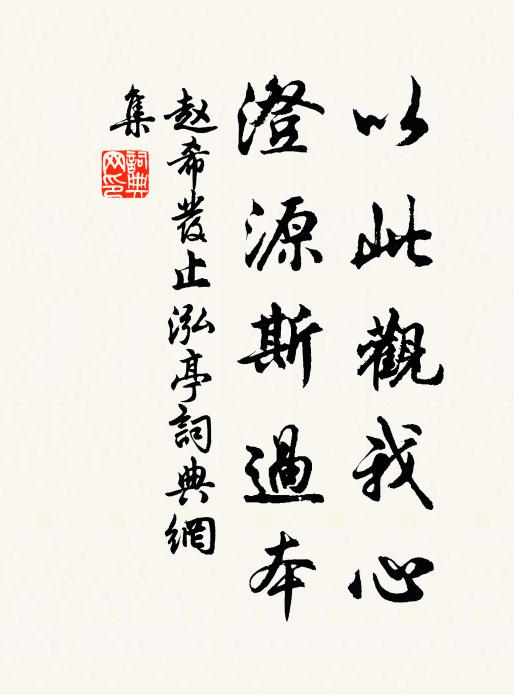 以此觀我心
澄源斯過本
赵希發止泓亭詞典網
集
詞典
网印